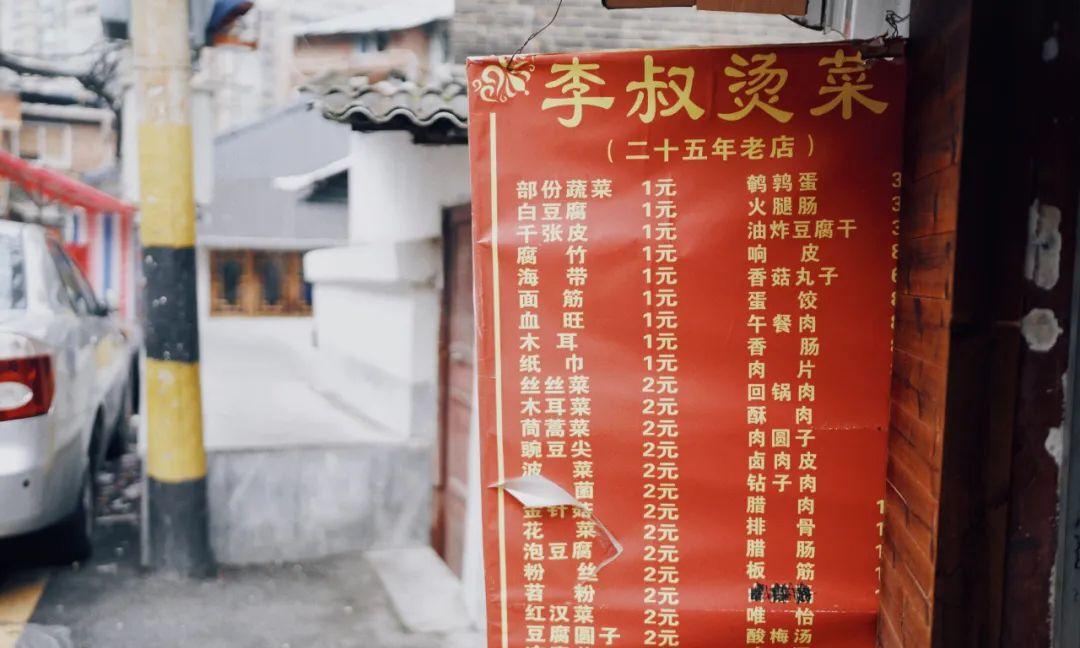 李叔烫菜
(二十五年老店)
部份蔬菜 1元
白豆腐 1元
千张皮 1元
腐竹 1元
海带 1元
面筋 1元
血旺 1元
木耳 1元
纸巾 1元
丝丝菜 2元
木耳菜 2元
茼蒿菜 2元
豌豆尖 2元
波菜 2元
菌 2元
金针菇 2元
花菜 2元
泡豆腐 2元
粉丝 2元
苕粉 2元
红汉菜 2元
豆腐圆子 2元
鹌鹑蛋
火腿肠
油炸豆腐干
响皮
香菇丸子
蛋饺
午餐肉
香肠
肉片
回锅肉
酥肉
肉圆子
卤肉皮
钻子肉
腊肉
排骨
腊肠
板筋
唯怡
酸梅汤